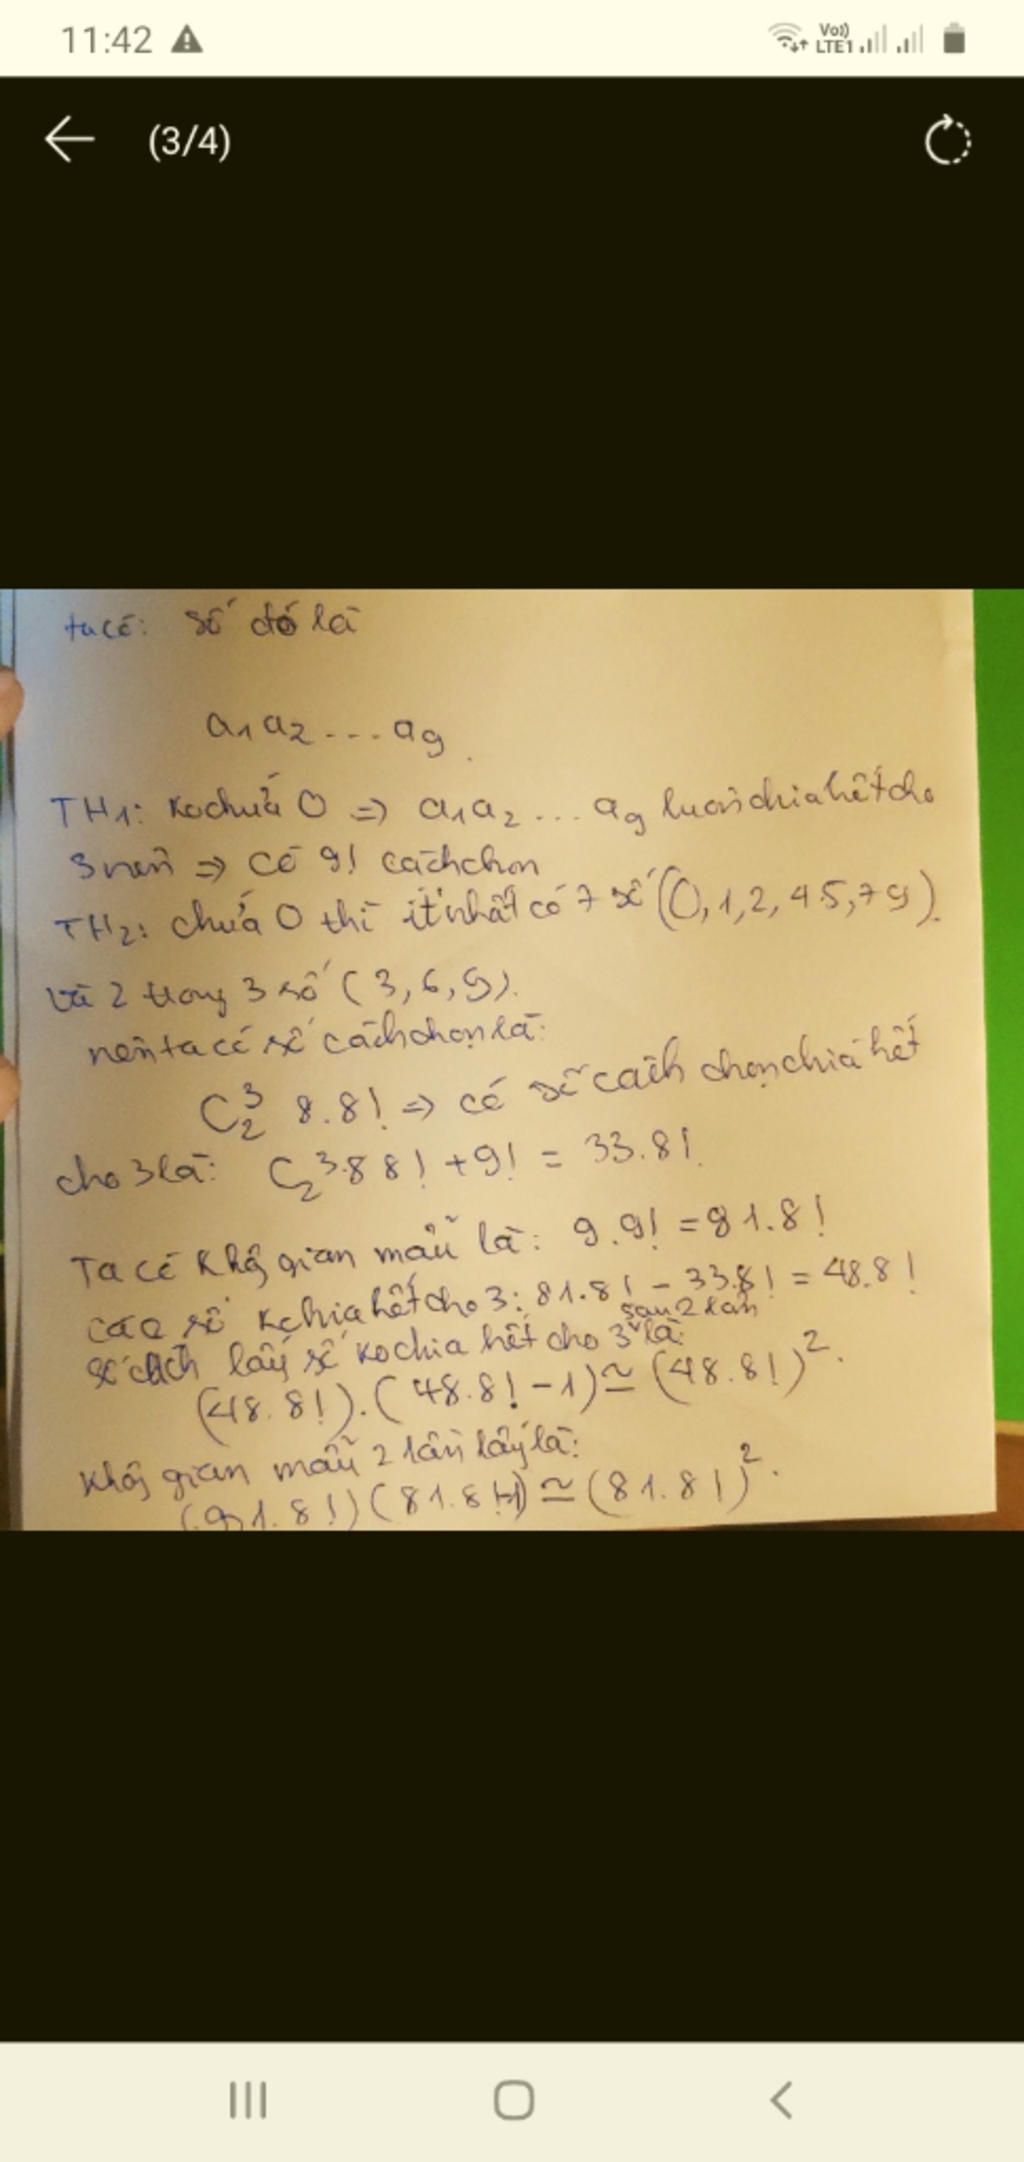 11:42
Vo)) LTE1
(3/4)
ta có: số đó là
a1 a2 ... a9.
TH1: ko chứa 0 => a1 a2 ... a9 luôn chia hết cho
3 nên => có 9! cách chọn
TH2: chứa 0 thì ít nhất có 7 số (0,1,2,4 5,7 9).
và 2 trong 3 số (3,6,9).
nên ta có số cách chọn là:
C 3 2 8.8! => có số cách chọn chia hết
cho 3 là: C 3 2 .8 8! + 9! = 33.8!.
Ta có không gian mẫu là: 9.9! = 81.8!
các số k chia hết cho 3: 81.8! - 33.8! = 48.8!
sau 2 lần
số cách lấy số ko chia hết cho 3 là:
(48.8!).(48.8!-1) ≃ (48.8!)².
không gian mẫu 2 lần lấy là:
(81.8!)(81.8!-1) ≃ (81.8!)².